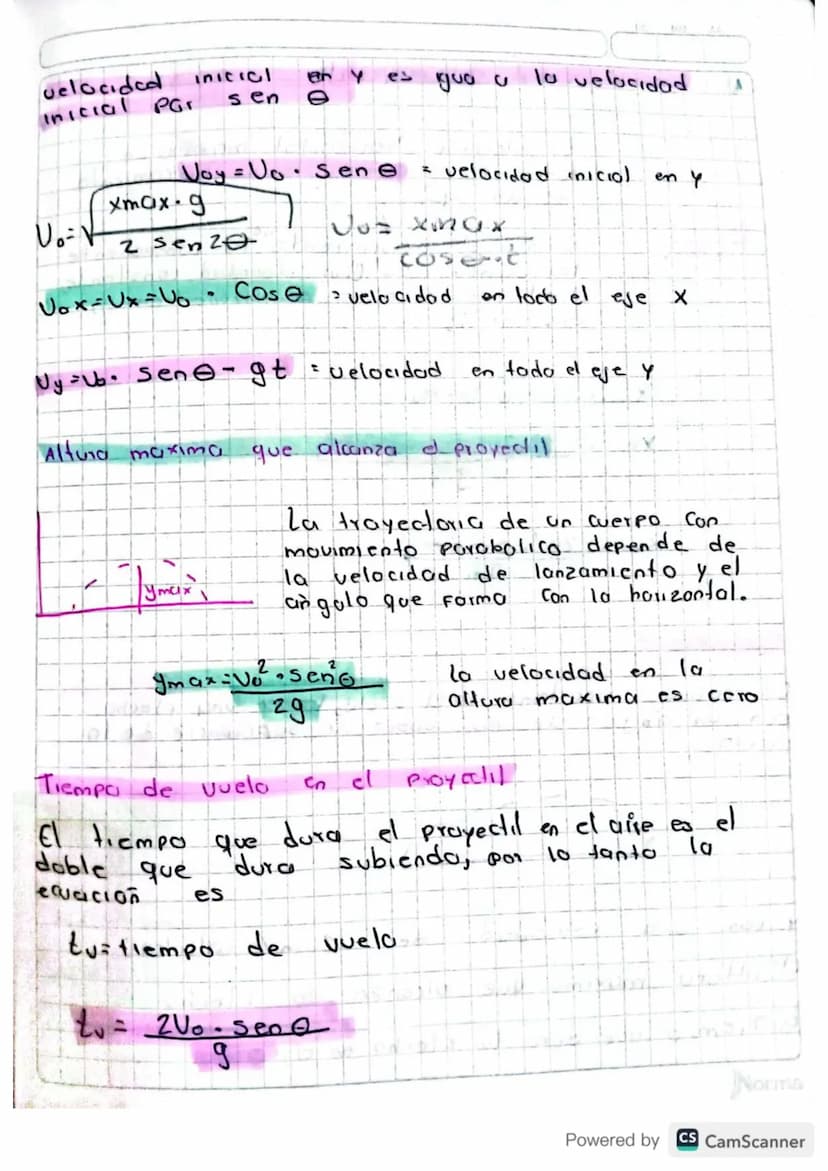 velocidad inicial en y es gua a la velocidad
inicial por sen θ
Voy = Vo · sen θ = velocidad inicial en y
Vo = √ xmax · g / 2 sen 2θ
Vo = xmax / cos θ · t
Vox = Vx = Vo · Cos θ = velocidad en todo el eje x
Vy = Vo · sen θ - gt = velocidad en todo el eje y
Altura maxima que alcanza el proyectil
La trayectoria de un cuerpo con
movimiento parabolico depende de
la velocidad de lanzamiento y el
angolo que forma con la horizontal.
ymax
ymax = Vo² · sen²θ / 2g
la velocidad en la
altura maxima es cero
Tiempo de vuelo en el proyectil
El tiempo que dura el proyectil en el aire es el
doble que dura subiendo, por lo tanto la
ecuación es
tv = tiempo de vuelo
tv = 2Vo · sen θ / g
Norma
Powered by CS CamScanner